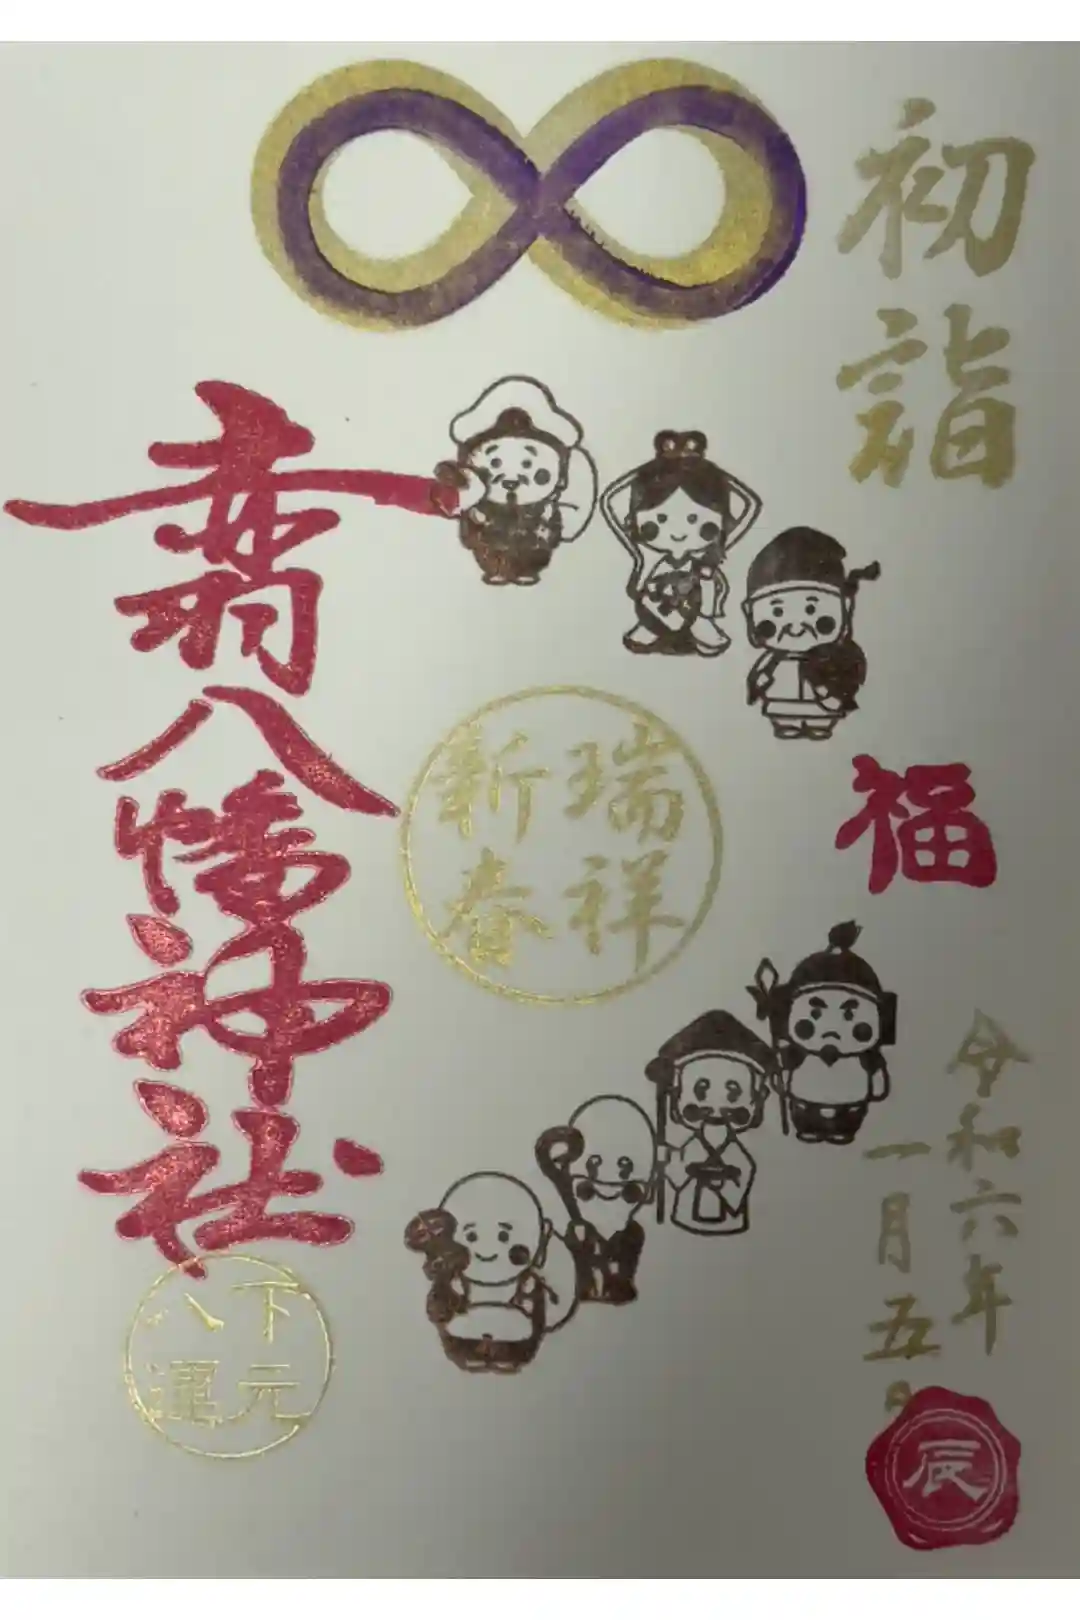 初詣
福
令和六年
一月五日
辰
瑞祥
新春
八幡神社
下元
八運